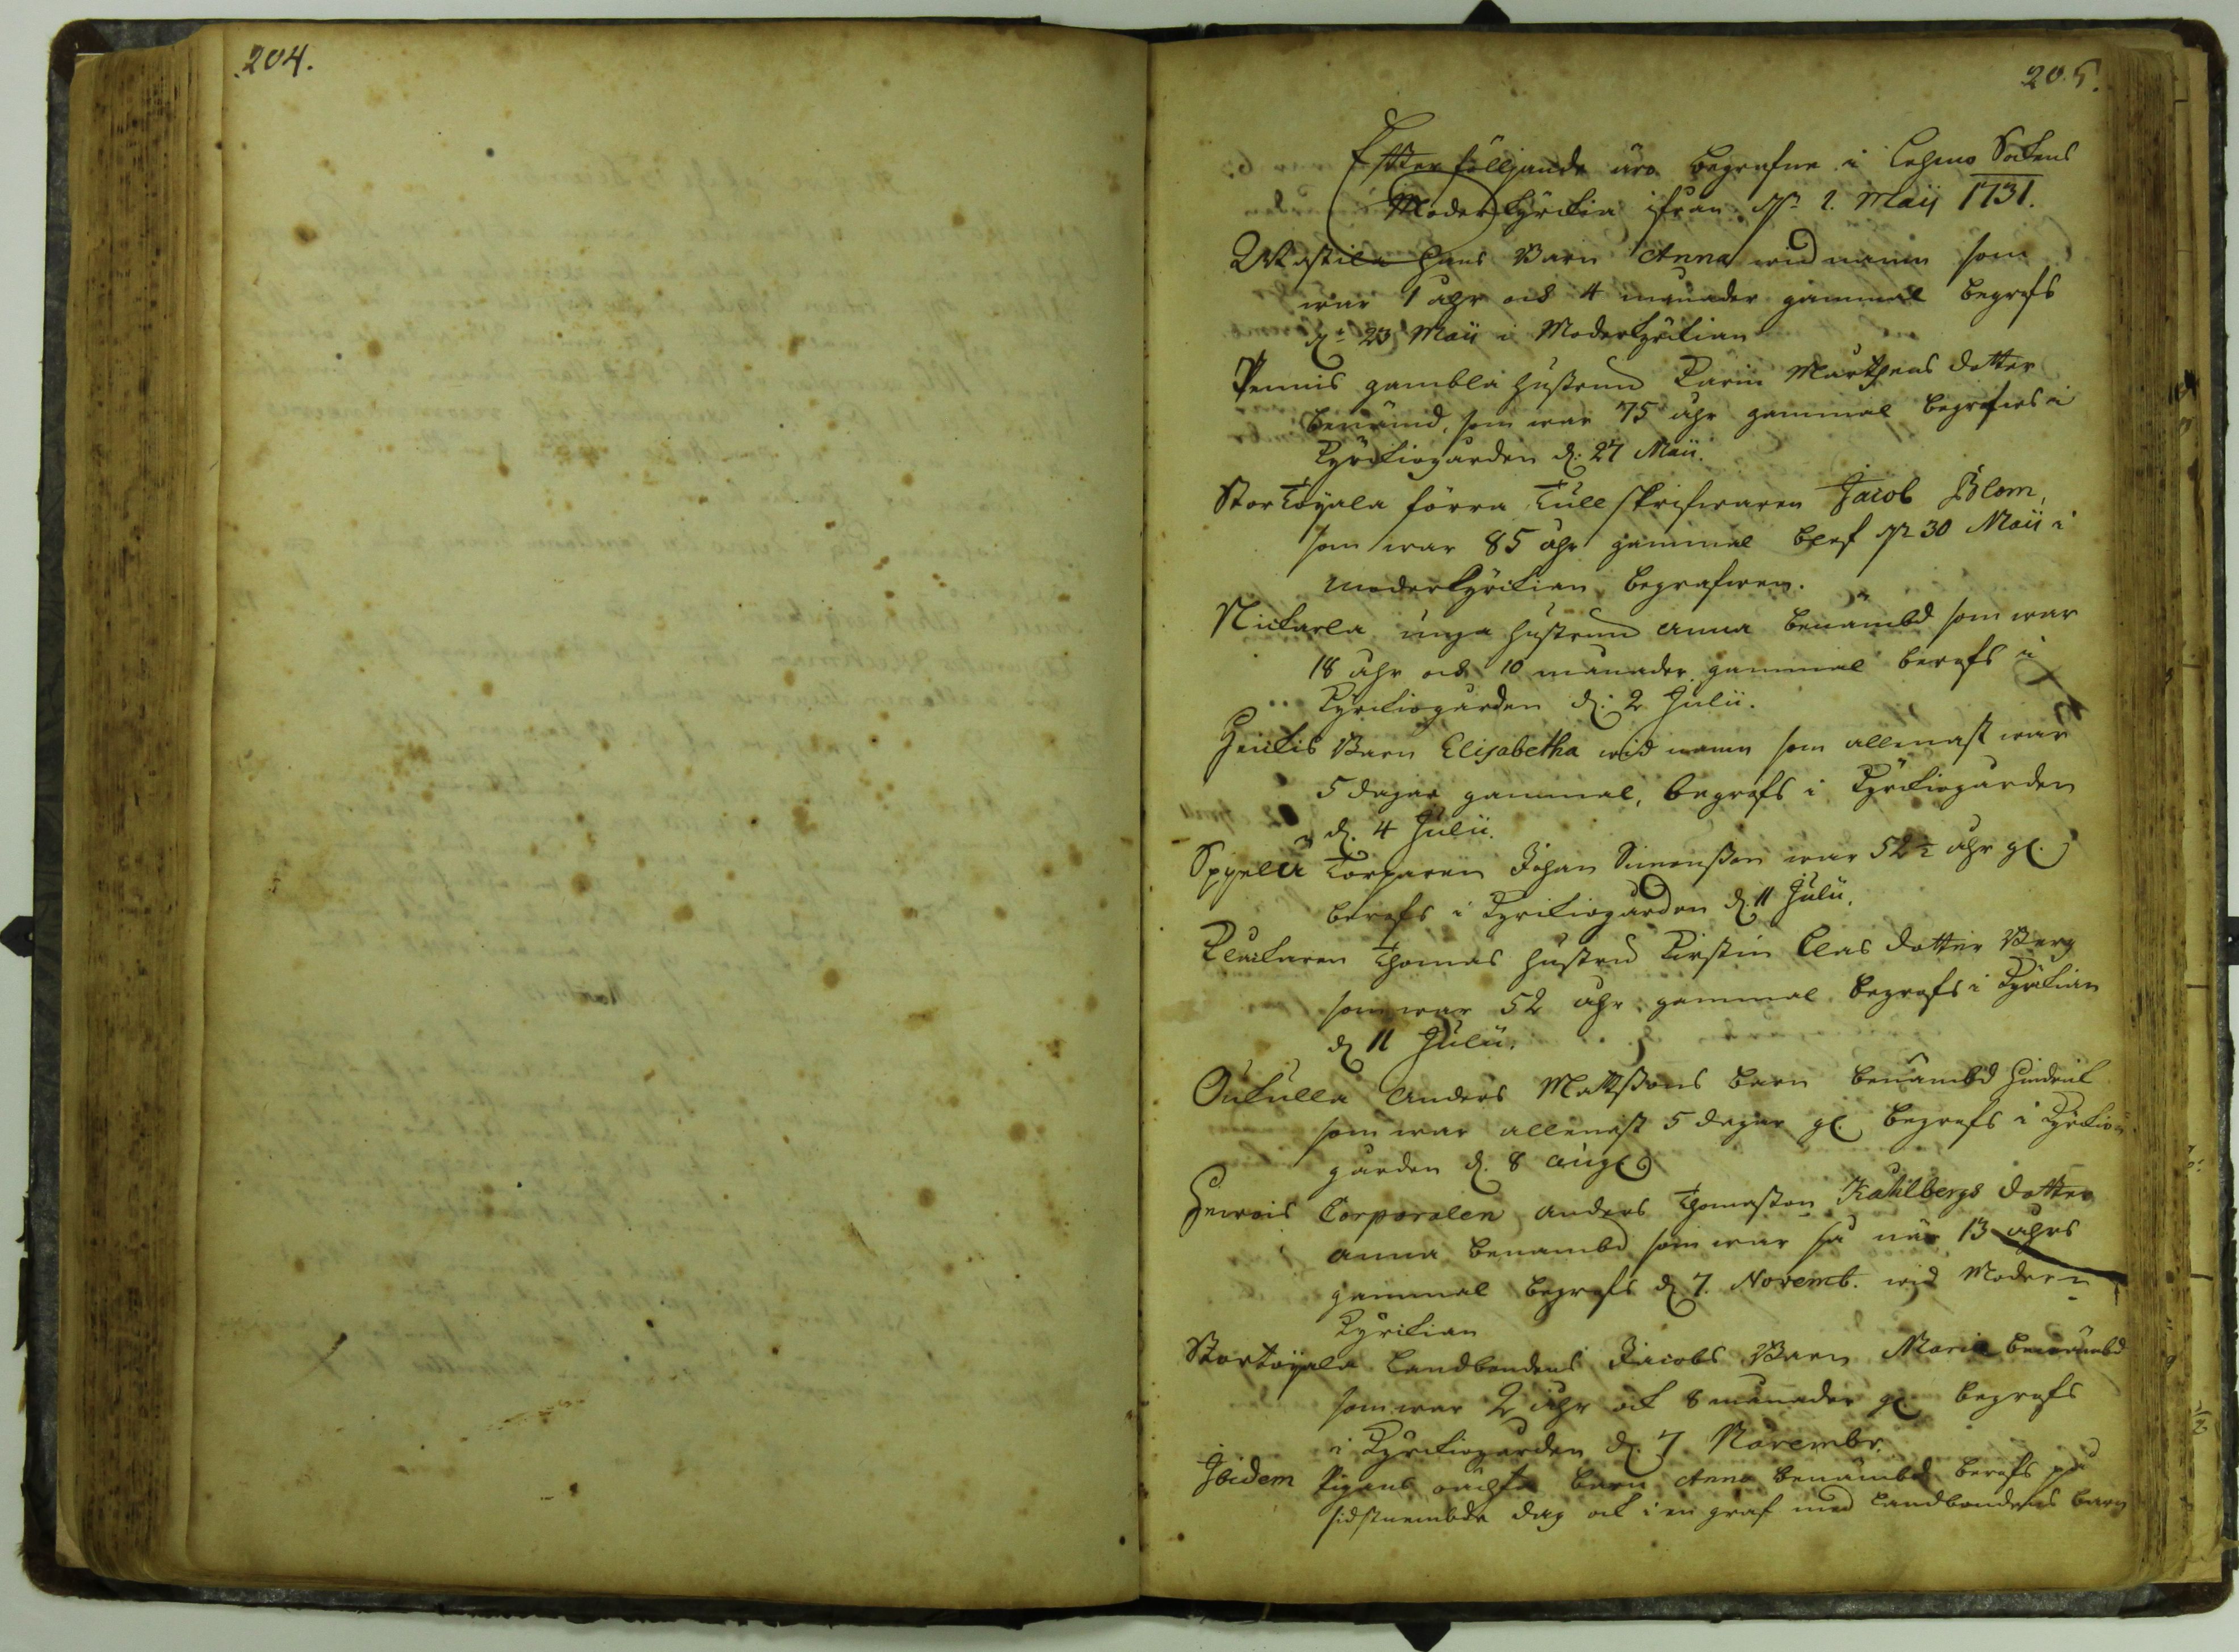 204.
205.
Effter följande äro begrafne i Lehmo Sokens
Moderkyrkia ifrån dn 1. Maij 1731.
Wastila Hans Barn Anna wid namn som
war 1 ahr och 4 månader gammal begrofs
dn 23 Maii i Moderkyrkian
gambla hustrun Karin Marthens dotter
benämd, som war 75 ahr gammal begrofwes i
Kyrkiogården d: 27 Maii.
StorToyala förra Tullskrifwaren Jacob Blom,
som war 85 åhr gammal blef dn 30 Maii i
moderkyrkian begrafwen.
Nickarla unga hustrun Anna benämbd som war
18 åhr och 10 månader gammal berofs i
Kyrkiogården d: 2 Julii.
Barn Elisabetha wid namn som allenast war
5 dagar gammal, begrofs i Kyrkiogården
d. 4 Julii.
Torparen Johan Simonsson war 52 ½ ahr gl.
berofs i Kyrkiogården d. 11 Julii.
Kluckaren Thomas hustru Kirstin Clas dotter Berg
som war 52 ahr gammal begrofs i Kyrkian
d 11 Julii.
Outulla Anders Mattssons barn benämbd Hindrik
som war allenast 5 dagar gl. begrofs i Kyrkio
gården d. 8 Aug.
Corporalen Anders Thomasson Kahlbergs dotter
Anna benämbd som war så när 13 ahrs
gammal begrofs d 7. Novemb. wid Moder-
Kyrkian
Stortoyala Landbondens Jacobs Barn Maria benämbd
som war 2 åhr och 8 månader gl. begrofs
i Kyrkiogården d. 7 Novembr.
Ibidem Pigans oächta barn Anna benämbd berofs på
sidstnembde dag och i en graf med Landbondens barn